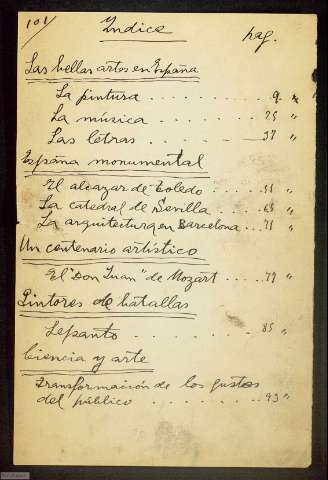 101/ Indice
pag.
Las bellas artes en España
La pintura . . . . . . . . . 9 "
La música . . . . . . . . 25 "
Las létras . . . . . . . . 37 "
España monumental
El alcazar de Toledo . . . . 51 "
La catedral de Sevilla . . . 65 "
La arquitectura en Barcelona . . . 71 "
Un centenario artístico
El "Don Juan" de Mozart . . . . . 79 "
Pintores de batallas
Lepanto . . . . . . . . . 85 "
Ciencia y arte
Transformación de los gustos
del público . . . . . . . . . 93 "